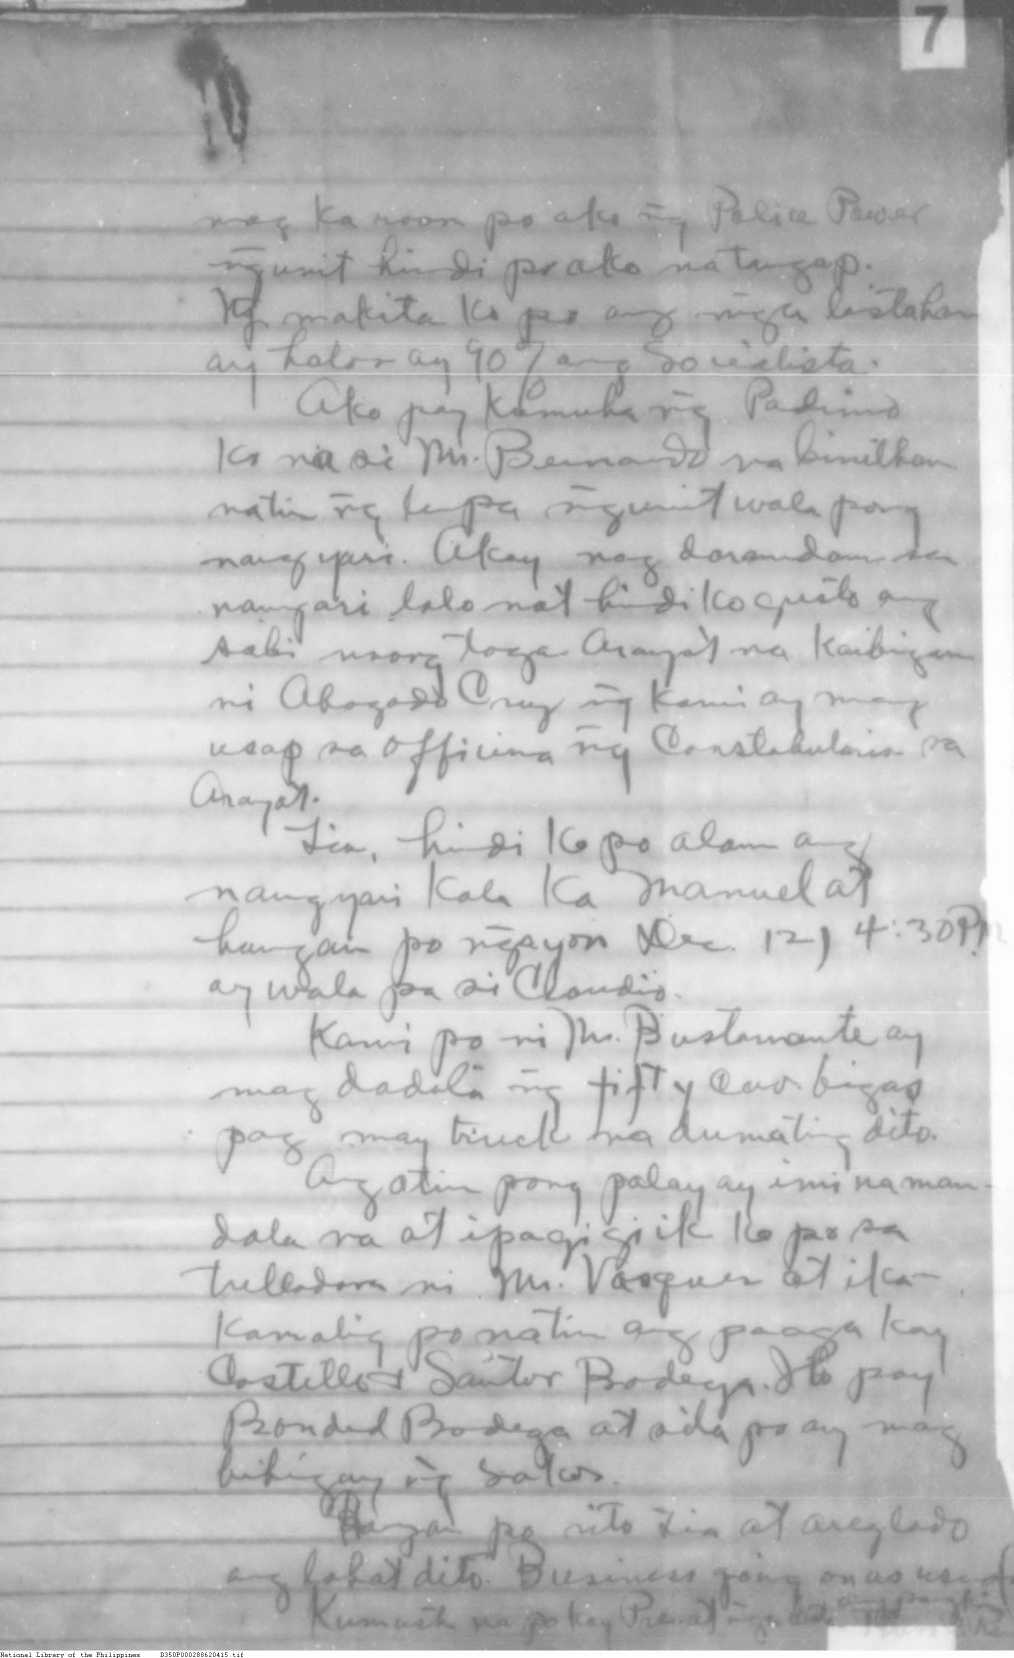 7
mag ka roon po ako ng̃ Police Power
ng̃unit hindi po ako natangap.
Ng makita ko po ang mg̃a listahan
ay halos ay 90% ang Socialista.
Ako pay kumuha ng̃ Padrino
ko na si Mr. Bernardo na binilhan
natin ng̃ lupa ng̃unit wala pong
nangyari. Akoy nag daramdam sa
nangari lalo na't hindi ko gusto ang
sabi noong taga Arayat na kaibigan
ni Abogado Cruz ng̃ kami ay mag
usap sa officina ng̃ Constabularia sa
Arayat.
Tia, hindi ko po alam ang
nangyari kala Ka Manuel at
hangan po ng̃ayon Dec. 12, 4:30 PM
ay wala pa si Claudio.
Kami po ni Mr. Bustamante ay
mag dadala ng̃ fifty cav. bigas
pag may truck na dumating dito.
Ang atin pong palay ay ini naman-
dala na at ipagigiik ko po sa
trelladora ni Mr. Vasquez at ika-
kamalig po natin ang paaga kay
Castillo & Santor Bodega. Ito pay
Bonded Bodega at sila po ay mag
bibigay ng̃ sakos.
Hangan po rito Tia at areglado
ang lahat dito. Business going on as usual
Kumusta na po kay
National Library of the Philippines D350P000288620415.tif